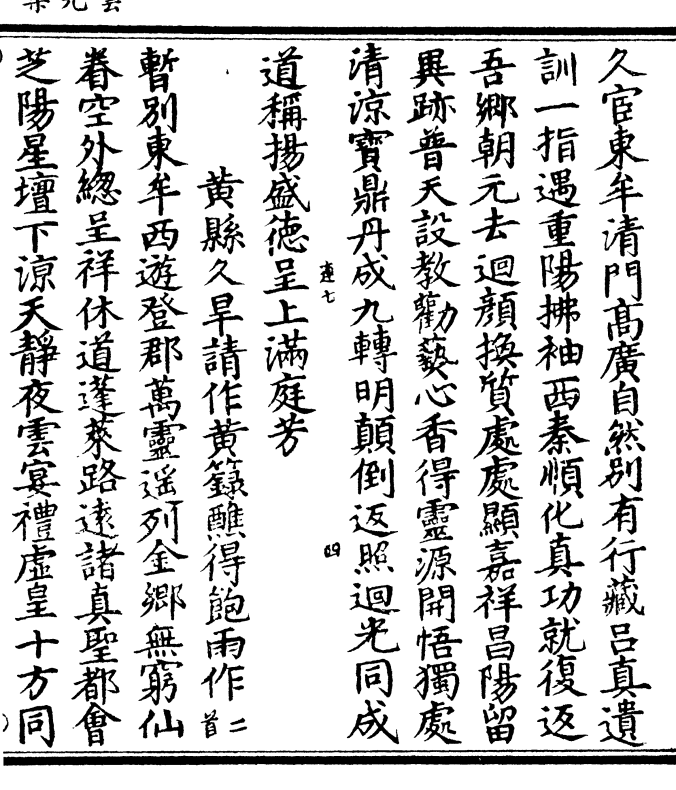 久宦東牟清門髙廣自然别有行藏吕真遺
訓一指遇重陽拂袖西秦順化真功就復返
吾鄉朝元去迴顔換質處處顯嘉祥昌陽留
異跡普天設教勸爇心香得靈源開悟獨處
清涼寳鼎丹成九轉明顛倒返照迴光同成
連七
四
道稱揚盛德呈上滿庭芳
黄縣久旱請作黄籙醮得飽雨作二首
暫别東牟西遊登郡萬靈遥列金鄉無窮仙
眷空外緫呈祥休道蓬萊路遠諸真聖都會
芝陽星壇下涼天靜夜雲宴禮虛皇十方同